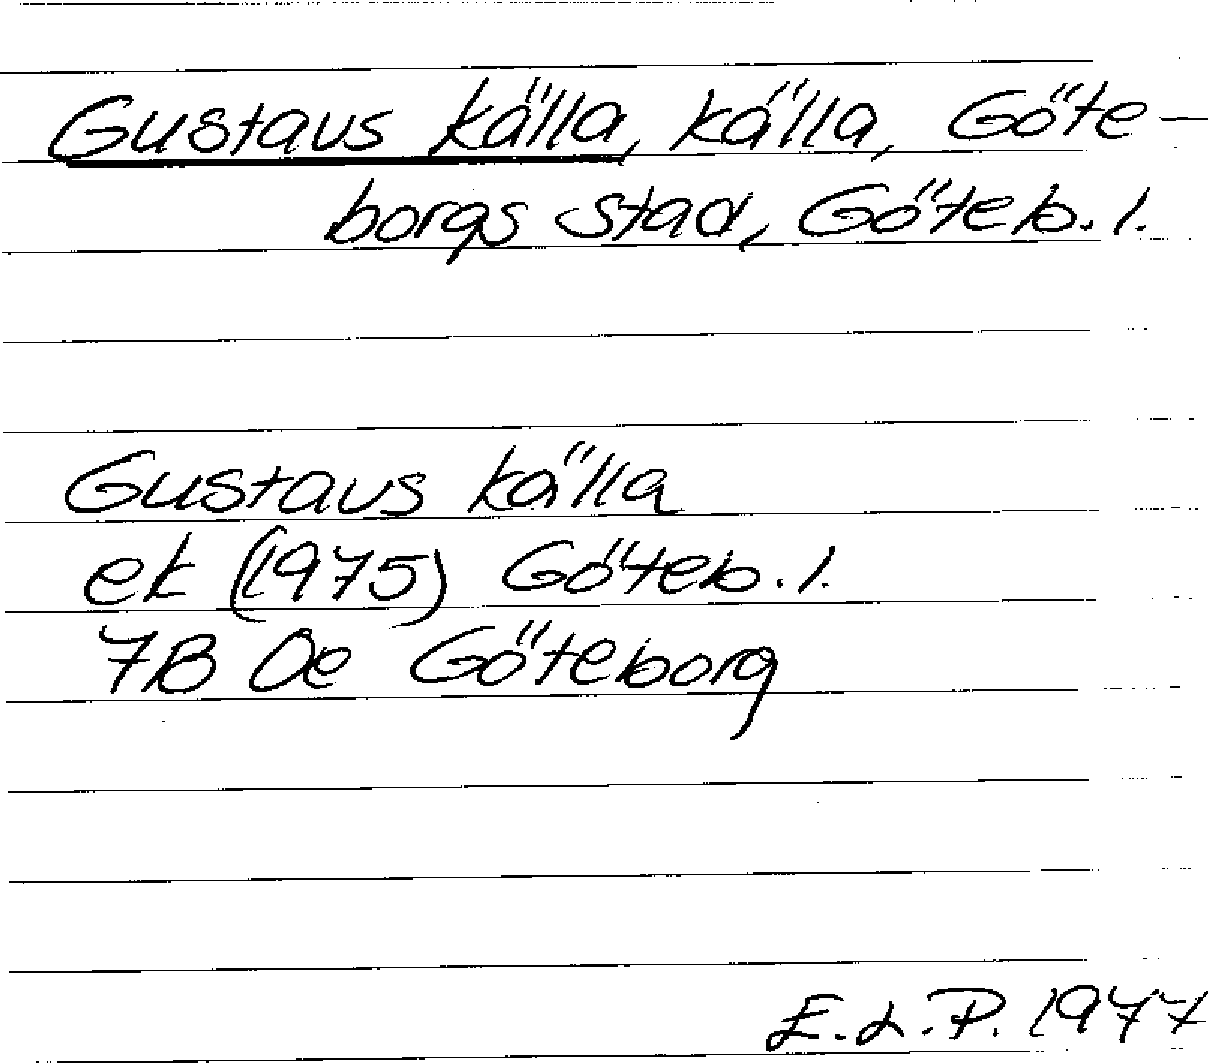 Gustavs källa, källa, Göte-
borgs stad, Göteb. l.
Gustavs källa
ek (1975) Göteb. l.
7B 0e Göteborg
E.L.P. 1977